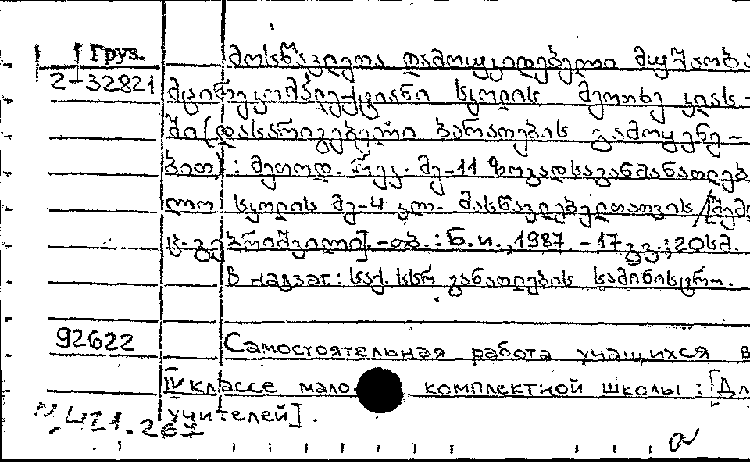 Груз.
2-32821
მოსწავლეთა დამოუკიდებელი მუშაობა
მცირეკომპლექტიანი სკოლის მეოთხე კლას-
ში (დასარიგებელი ბარათების გამოყენე-
ბით) : მეთოდ. რეკ. მე-11 ზოგადსაგანმანათლებ
ლო სკოლის მე-4 კლ. მასწავლებლებისათვის /
]. - თბ. : ნ. ი., 1987. - 17 გვ.; 20სმ.
В надзаг: საქ. სსრ განათლების სამინისტრო.
92622
Самостоятельная работа учащихся в
IV классе мало комплектной школы : [Дл
учителей].